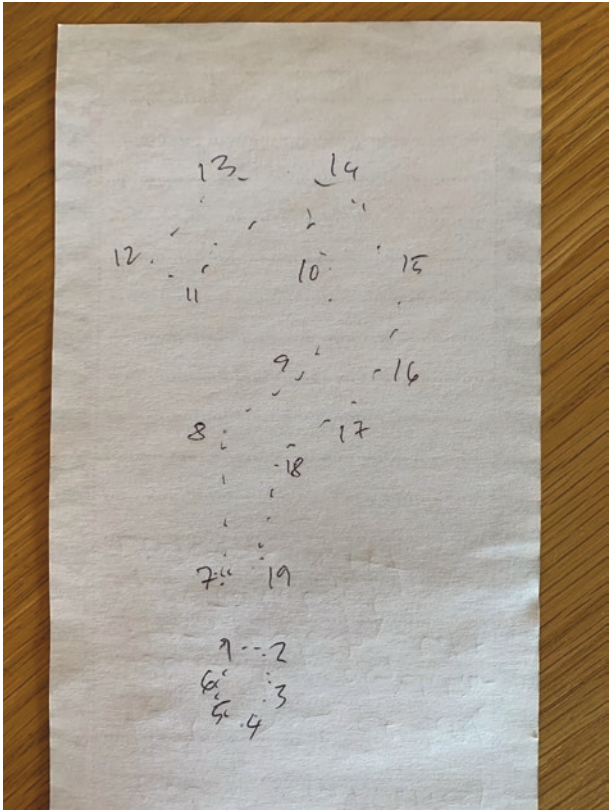 13 14
12 10 15
11
9 16
8 17
18
7 19
1 2
6 3
5 4